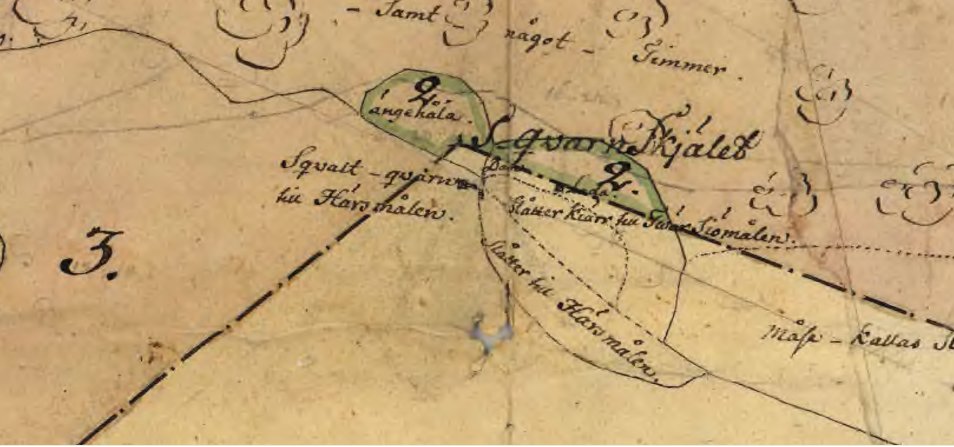 – Samt –
något –
Timmer.
2.
ängehåla.
S-qvarn Skjälet
Squalt - qvarn
till Hårsmålen.
Dam
2.
Slåtter Kiärr till Twär Siömålen.
3.
Slåtter till Hårsmålen.
Måse - kallas